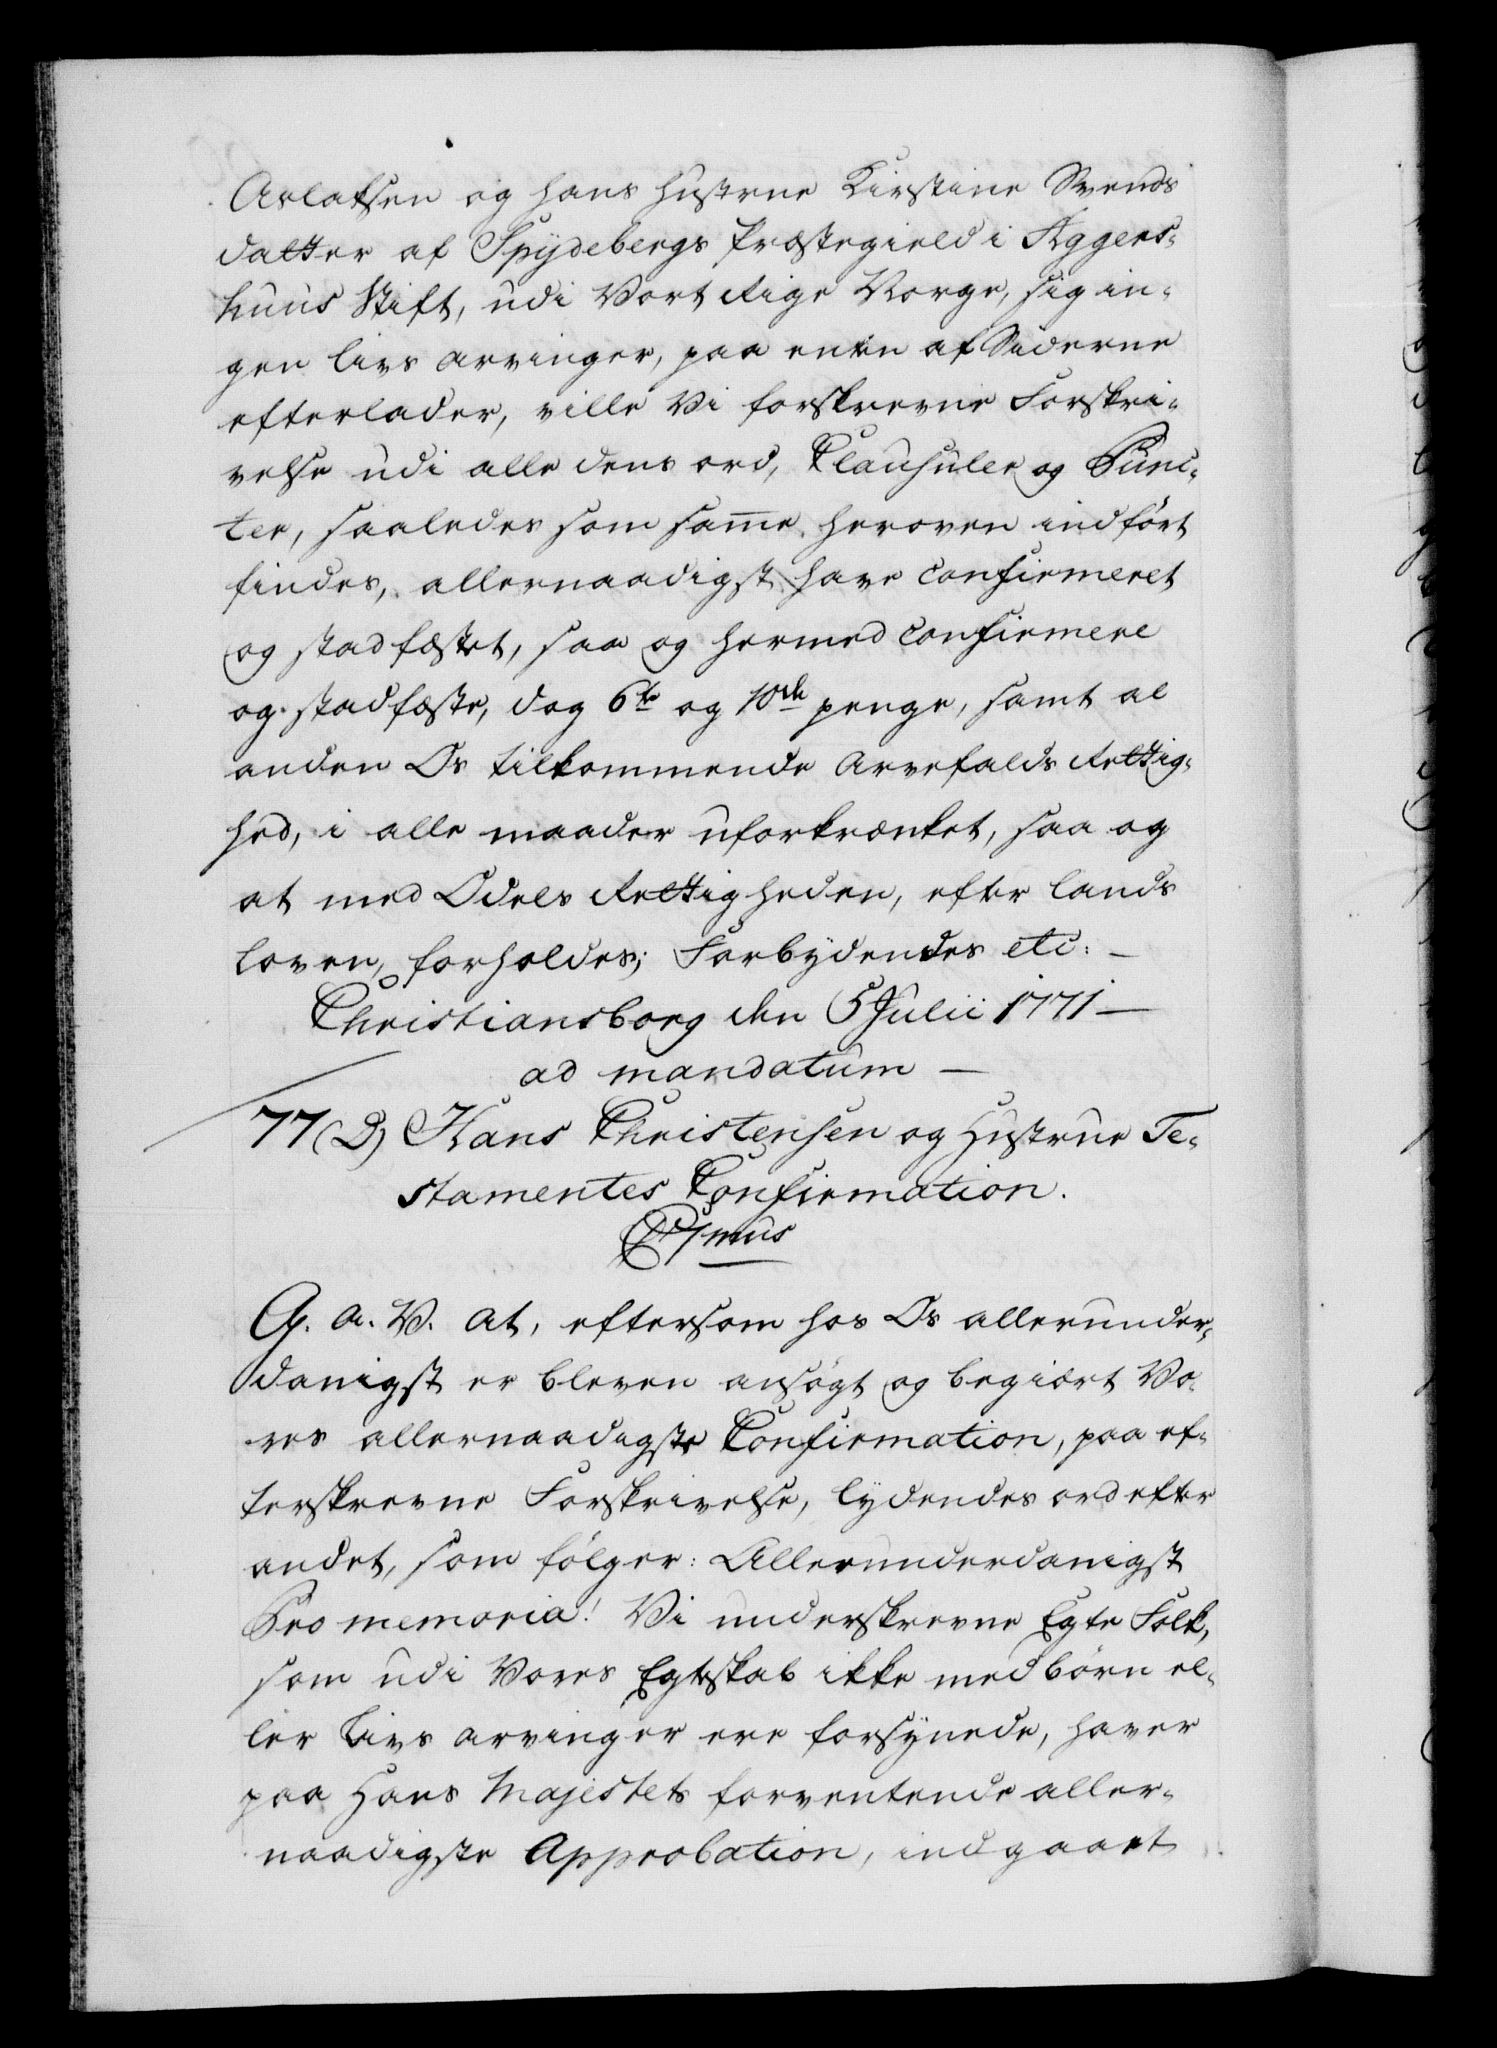 Aslaksen og hans Hustrue Kirstine Svends
datter af Spydebergs Præstegield i Aggers-
huus Stift, udi Vort Rige Norge, sig in-
gen livs arvinger, paa enten af Siderne
efterlader, ville Vi forskrevne Forskri-
velse udi alle dens ord, Clausuler og Punc-
ter, saaledes som samme heroven indført
findes, allernaadigst have confirmeret
og stadfæstet, saa og hermed confirmere
og stadfæste, dog 6te og 10de penge, samt al
anden Os tilkommende Arvefalds Rettig-
hed, i alle maader uforkrænket, saa og
at med Odels Rettigheden, efter lands
loven, forholdes; Forbydendes etc: –
Christiansborg den 5 Julii 1771 –
ad mandatum –
77 (D) Hans Christensen og Hustrue Te-
stamentes Confirmation.
C 7mus
G. a. V. at, eftersom hos Os allerunder-
danigst er bleven ansøgt og begiært Vo-
res allernaadigste Confirmation, paa ef-
terskrevne Forskrivelse, lydendes ord efter
andet, som følger: Allerunderdanigst
Pro memoria! Vi underskrevne Egte Folk,
som udi Vores Egteskab ikke med børn el-
ler Livs arvinger ere forsynede, haver
paa Hans Majestets forventende aller-
naadigste Approbation, indgaaet